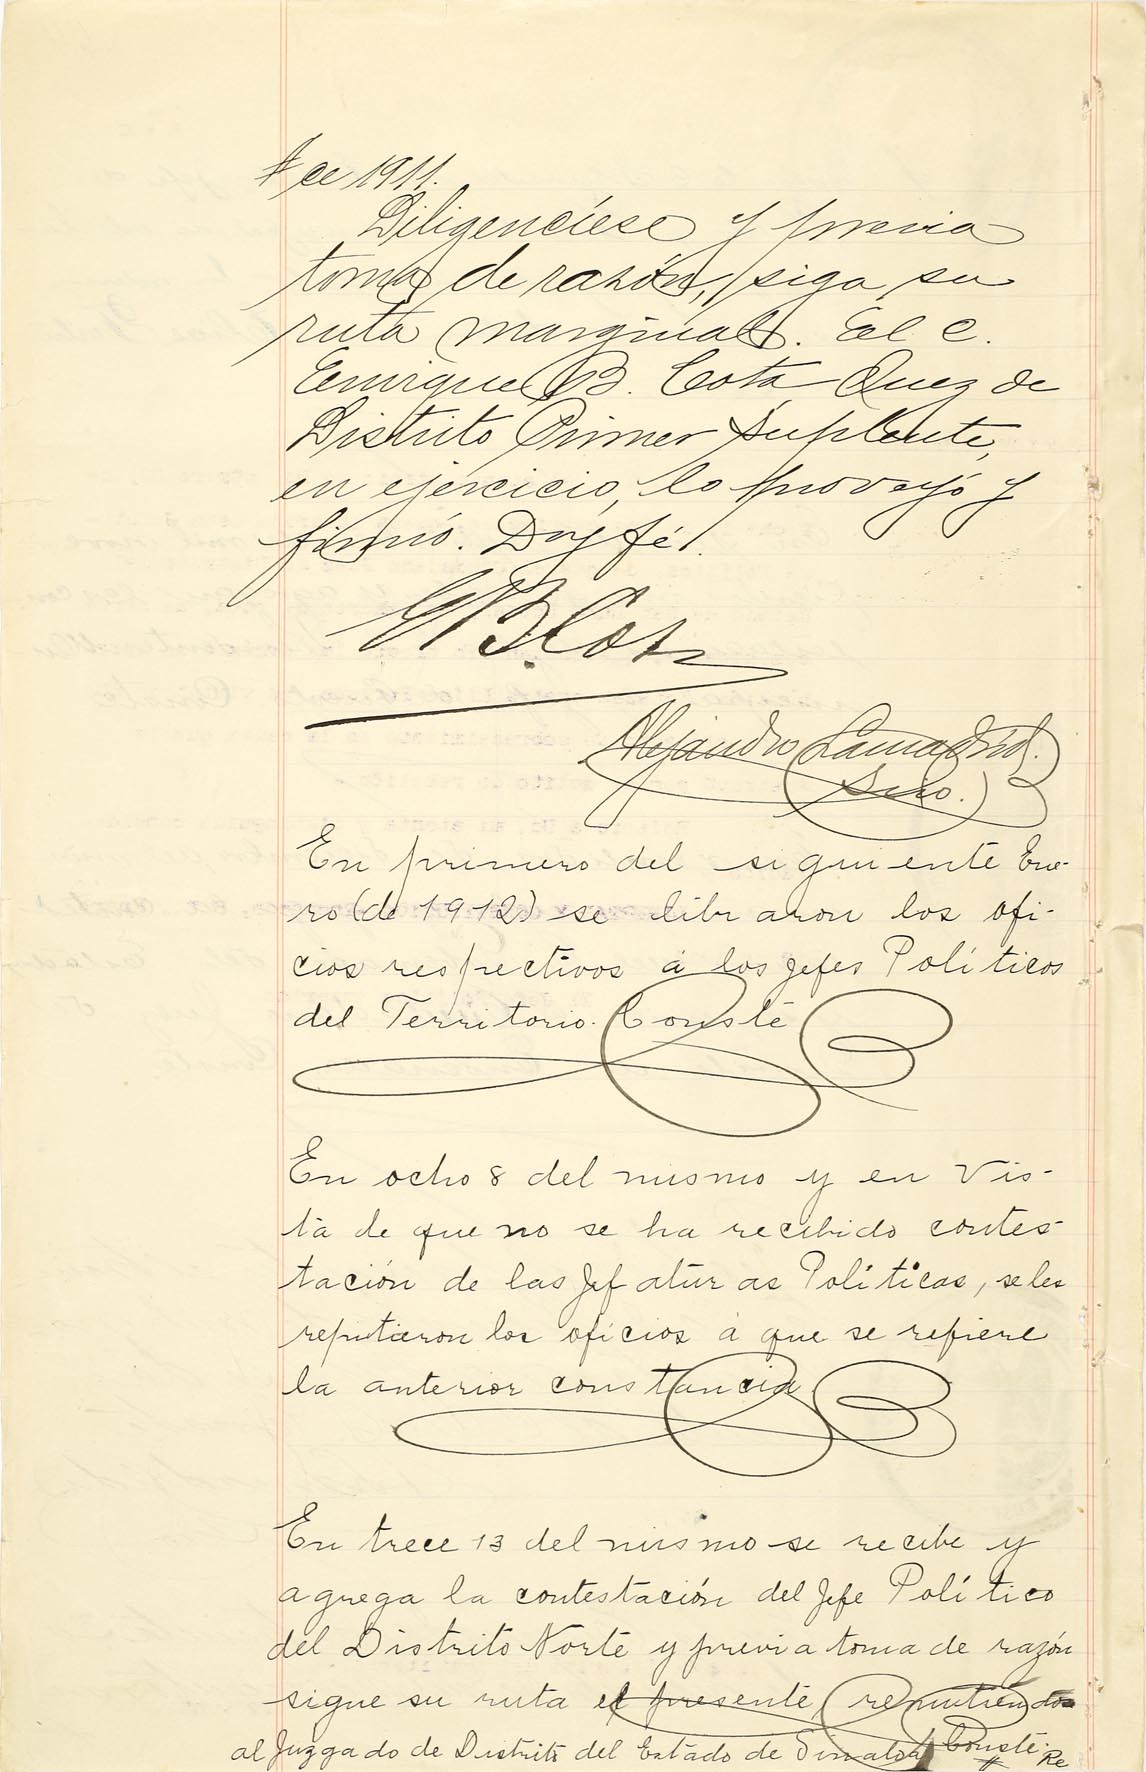 de 1911.
Diligencíese y previa
toma de razón, siga su
ruta marginal. El C.
Enrique B. Cota Juez de
Distrito Primer Suplente,
en ejercicio, lo proveyó y
firmó. Doy fé.
E B. Cota
Alejandro Lamadrid.
Srio.
En primero del siguiente Ene-
ro (de 1912) se libraron los ofi-
cios respectivos á los Jefes Políticos
del Territorio. Conste
En ocho 8 del mismo y en vis-
ta de que no se ha recibido contes-
tación de las Jefaturas Políticas, se les
repitieron los oficios á que se refiere
la anterior constancia
En trece 13 del mismo se recibe y
agrega la contestación del Jefe Político
del Distrito Norte y previa toma de razón
sigue su ruta el presente, remitiendose
al Juzgado de Distrito del Estado de Sinaloa Conste. Re